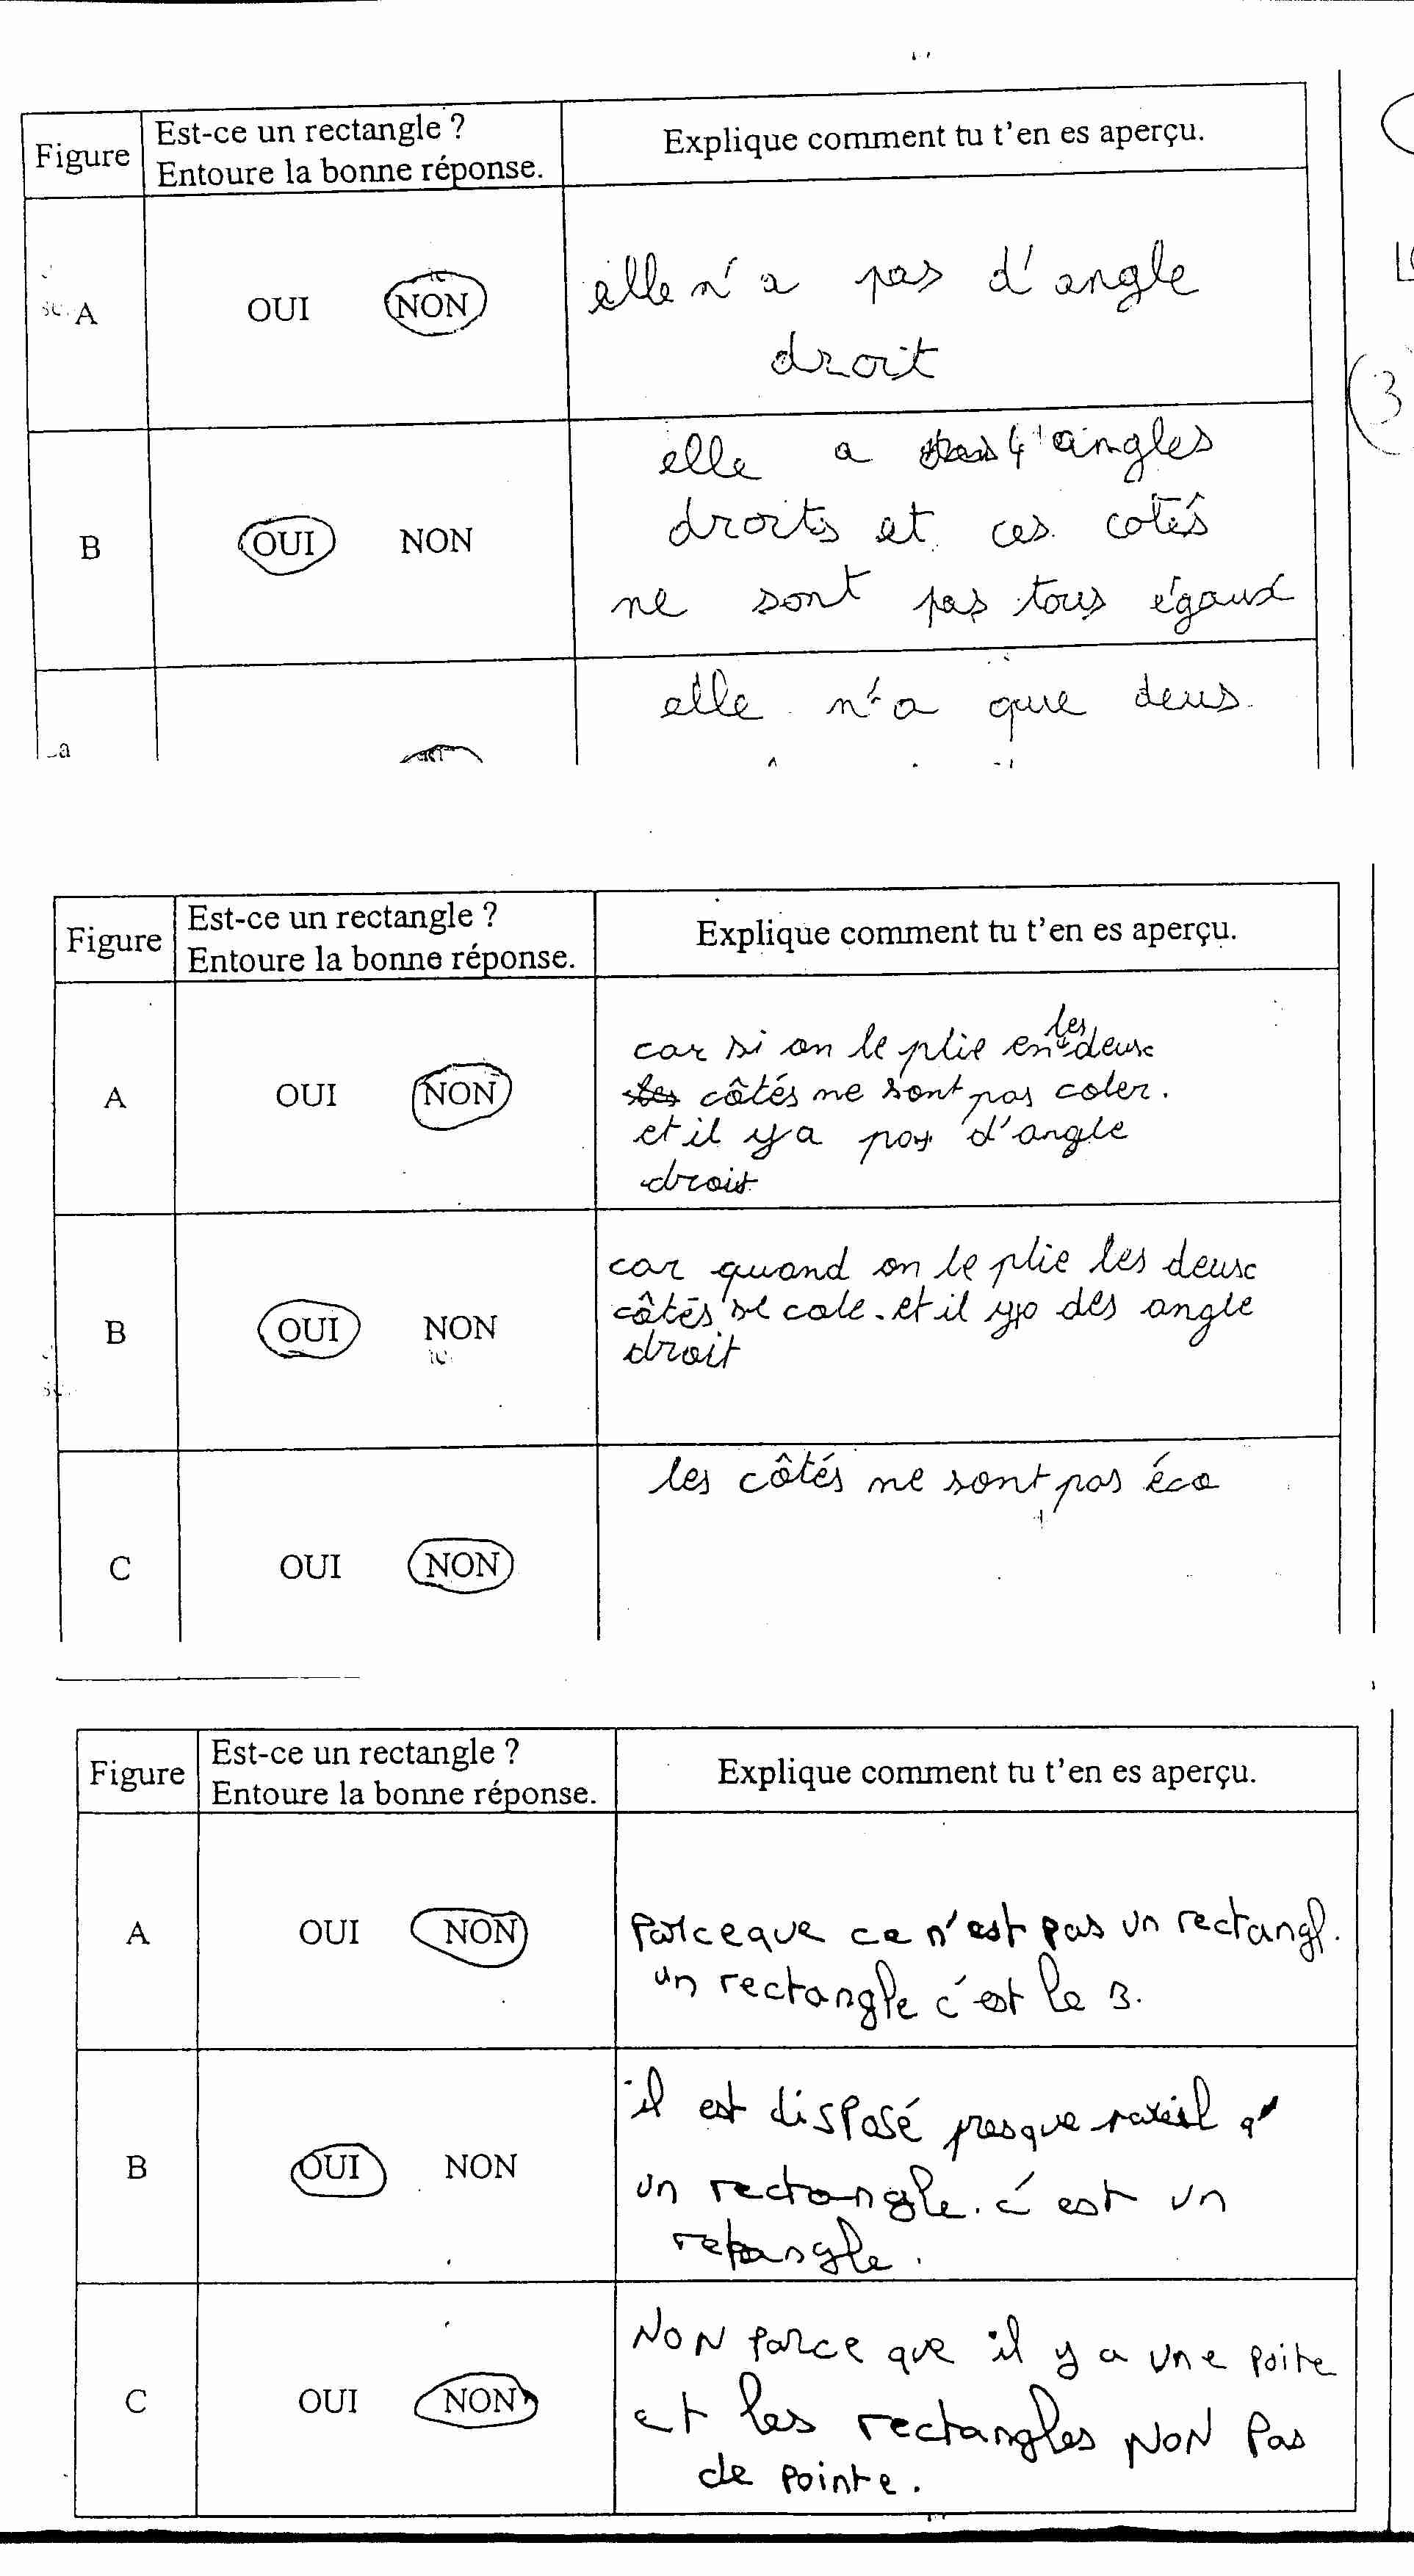 Figure
Est-ce un rectangle ?
Entoure la bonne réponse.
Explique comment tu t'en es aperçu.
A
OUI NON
elle n'a pas d'angle
droit
B
OUI NON
elle a 4 angles
droits et ces cotés
ne sont pas tous égaux
elle n'a que deus
3
Figure
Est-ce un rectangle ?
Entoure la bonne réponse.
Explique comment tu t'en es aperçu.
A
OUI NON
car si on le plie en deux les
côtés ne sont pas coler.
et il y a pas d'angle
droit
B
OUI NON
car quand on le plie les deux
côtés se cole. et il ya des angle
droit
C
OUI NON
les côtés ne sont pas éca
Figure
Est-ce un rectangle ?
Entoure la bonne réponse.
Explique comment tu t'en es aperçu.
A
OUI NON
Parceque ce n'est pas un rectangl.
un rectangle c'est le B.
B
OUI NON
il est disposé presque
un rectangle. c'est un
C
OUI NON
NON parce que il y a une poite
et les rectangles NON Pas
de pointe.